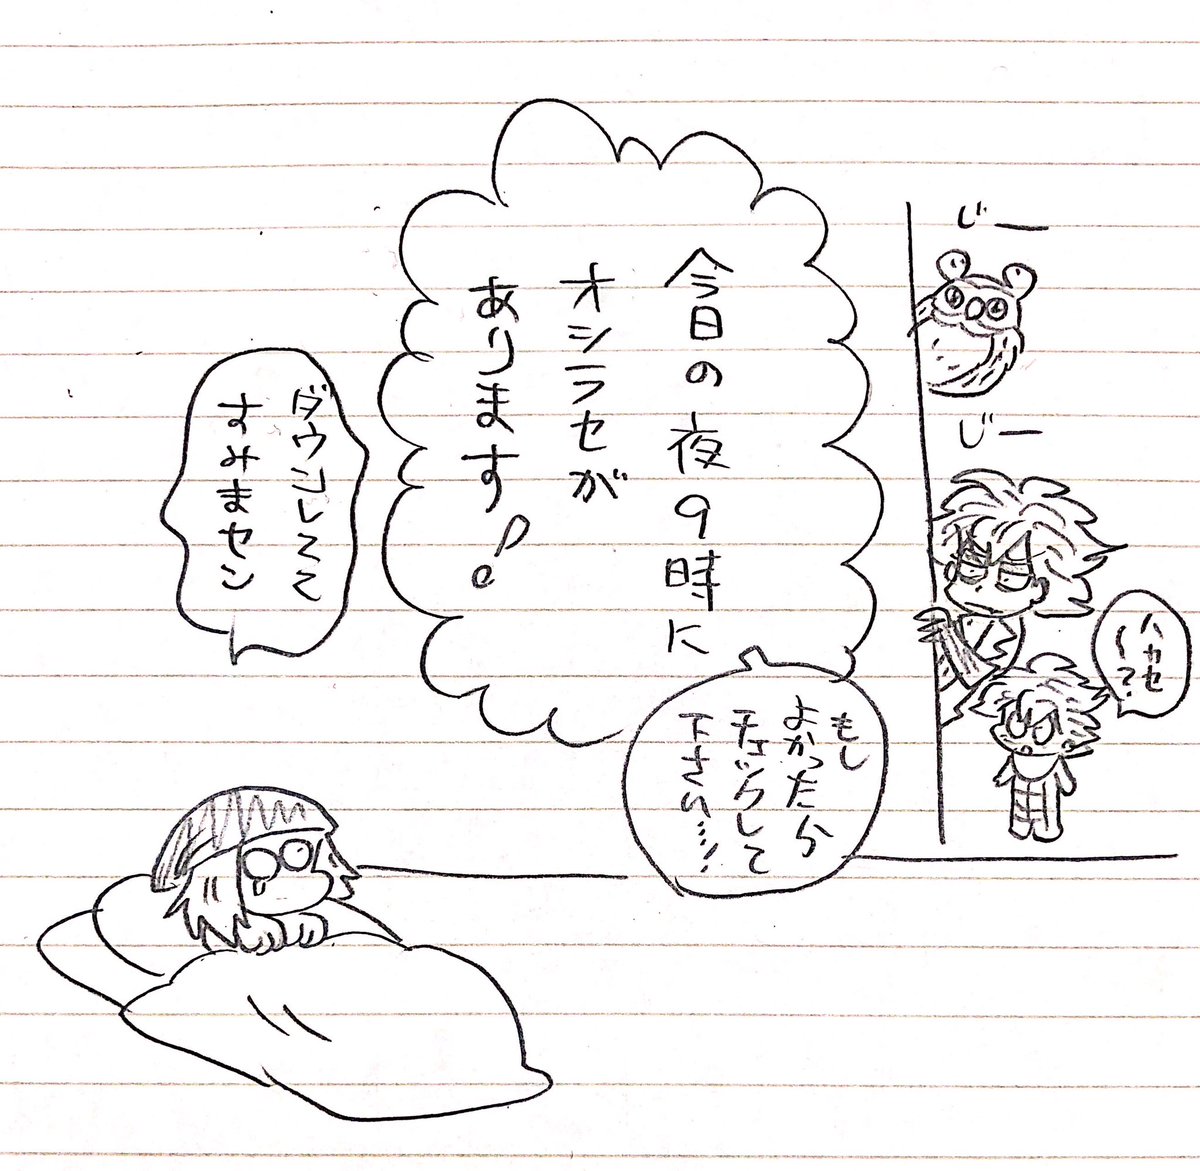 じー
じー
ハカセ
ー?
今日の夜9時に
オシラセが
あります!
もし
よかったら
チェックして
下さい…!
ダウンしてて
すみまセン